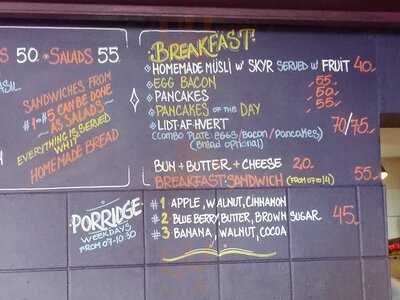 S 50. SALADS 55
ASIL
SANDWICHES FROM
#1-#5 CAN BE DONE
~ AS SALADS ~
EVERYTHING IS SERVED
WHIT
HOMEMADE BREAD
BREAKFAST:
HOMEMADE MÜSLI W/ SKYR SERVED W/ FRUIT 40.
EGG BACON 55.
PANCAKES 50.
PANCAKES OF THE DAY 55.
LIDT-AF-HVERT 70/75.
(COMBO PLATE: EGGS/Bacon/pancakes)
(Bread optional)
BUN + BUTTER + CHEESE 20.
BREAKFAST SANDWICH (FROM 07 TO 14) 55.
PORRIDGE
WEEKDAYS
FROM 07-10.30
#1 APPLE, WALNUT, CINNAMON
#2 BLUEBERRY BUTTER, BROWN SUGAR 45.
#3 BANANA, WALNUT, COCOA